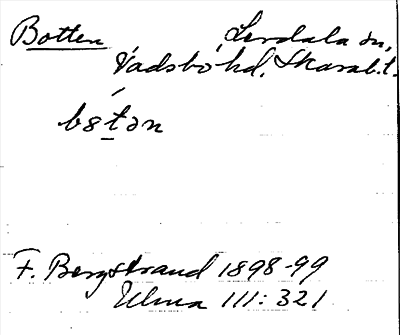 Botten Lerdala sn,
Vadsbo hd. Skarab.l.
bȣtən
F. Bergstrand 1898-99
Ulma 111:321